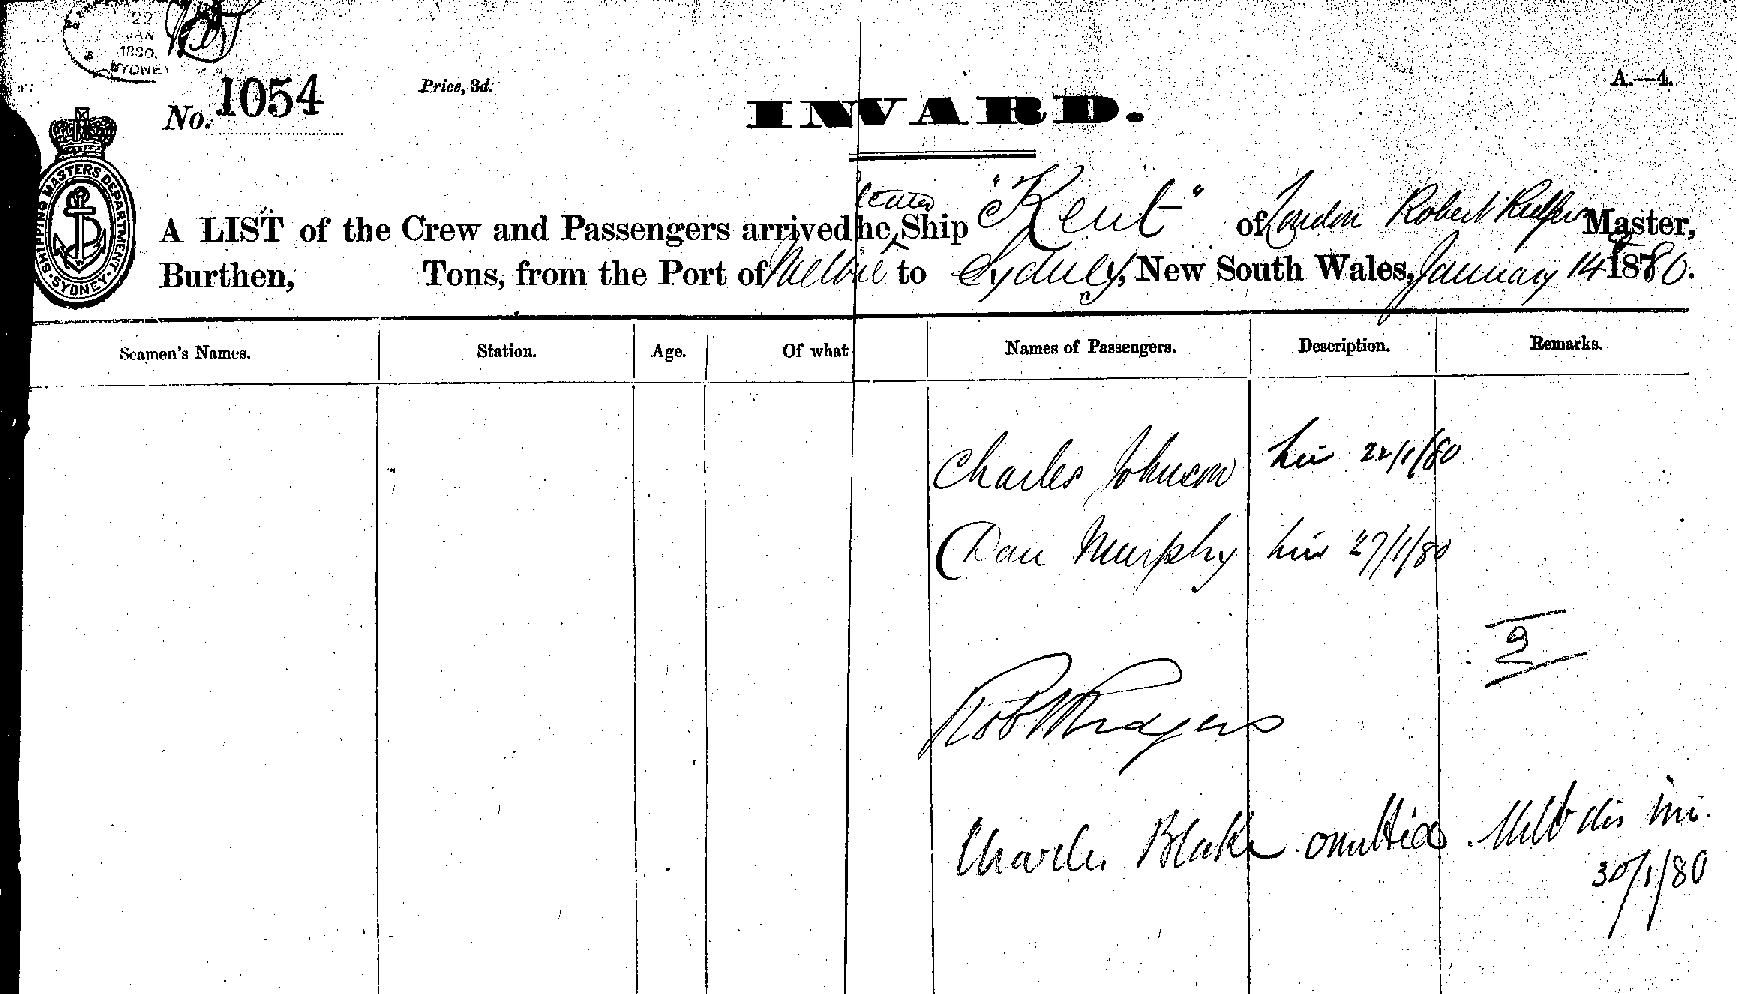 22
JAN
1880
SYDNEY
No. 1054
Price, 3d.
A.—4.
INWARD.
SHIPPING MASTERS DEPARTMENT. SYDNEY.
A LIST of the Crew and Passengers arrived Ship "Kent" of London Robert Master,
Burthen, Tons, from the Port of to Sydney, New South Wales, January 14 1880.
Seamen's Names. Station. Age. Of what Names of Passengers. Description. Remarks.
Charles Johnson 22/1/80
Dan Murphy 27/1/80
2
Charles Blake omitted Melb dis
30/1/80